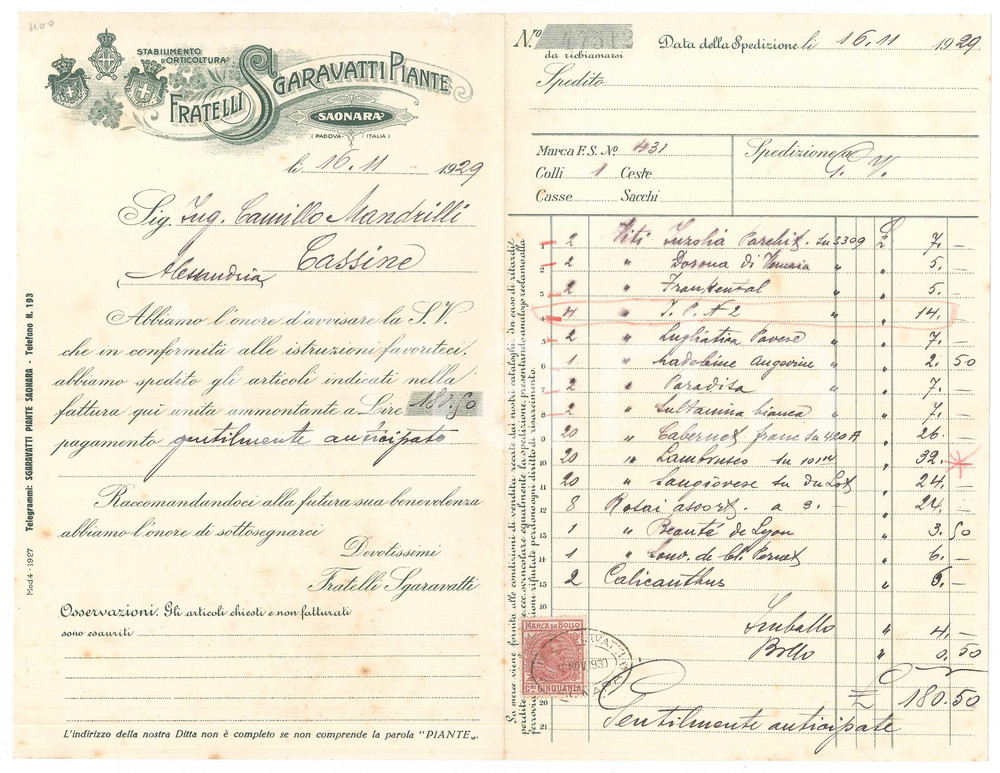 1100
STABILIMENTO
D'ORTICOLTURA
FRATELLI SGARAVATTI PIANTE
SAONARA
(PADOVA ITALIA)
li 16.11 1929
Sig. Ing. Camillo Mandrilli
Cassine
(Alessandria)
Abbiamo l'onore d'avvisare la S.V.
che in conformità alle istruzioni favoriteci,
abbiamo spedito gli articoli indicati nella
fattura quì unita ammontante a Lire 180,50
pagamento gentilmente anticipato
Raccomandandoci alla futura sua benevolenza
abbiamo l'onore di sottosegnarci
Devotissimi
Fratelli Sgaravatti
Osservazioni. Gli articoli chiesti e non fatturati
sono esauriti
L'indirizzo della nostra Ditta non è completo se non comprende la parola "PIANTE„.
Mod 4 - 1927 Telegrammi: SGARAVATTI PIANTE SAONARA - Telefono N. 193
N.º 47312
da richiamarsi
Data della Spedizione li 16.11 1929
Spedito
Marca F. S. Nº 431
Colli 1 Ceste
Casse Sacchi
Spedizione a
G. V.
La merce viene fornita alle condizioni di vendita recate dai nostri cataloghi. In caso di ritardi e
perdite ecc. svincolare egualmente la spedizione, presentando analogo reclamo alla
ferrovia. rifiutate perdono ogni diritto di risarcimento.
1 2 Viti Inzolia Parchit. su 3309 £ 7. —
2 2 " Dorona di Venezia " " 5. —
3 2 " Frankental " " 5. —
4 4 " I. P. N 2 " " 14. —
5 2 " Lugliatica Pavese " " 7. —
6 1 " Madeleine Angevine " " 2. 50
7 2 " Paradisa " " 7. —
8 2 " Sultanina bianca " " 7. —
9 20 " Cabernet franc su 420 A " 26. —
10 20 " Lambrusco su 101 14 " 32. —
11 20 " Sangiovese su du Lot " 24. —
12 8 Rosai assort. a 3. — " 24. —
13 1 " Beauté de Lyon " 3. 50
14 1 " Souv. de Cl. Pernet " 6. —
15 2 Calicanthus " 6. —
16
Imballo " 4. —
Bollo " 0, 50
£ 180.50
20
21 Gentilmente anticipate
MARCA DA BOLLO
C.MI CINQUANTA
NOV 193